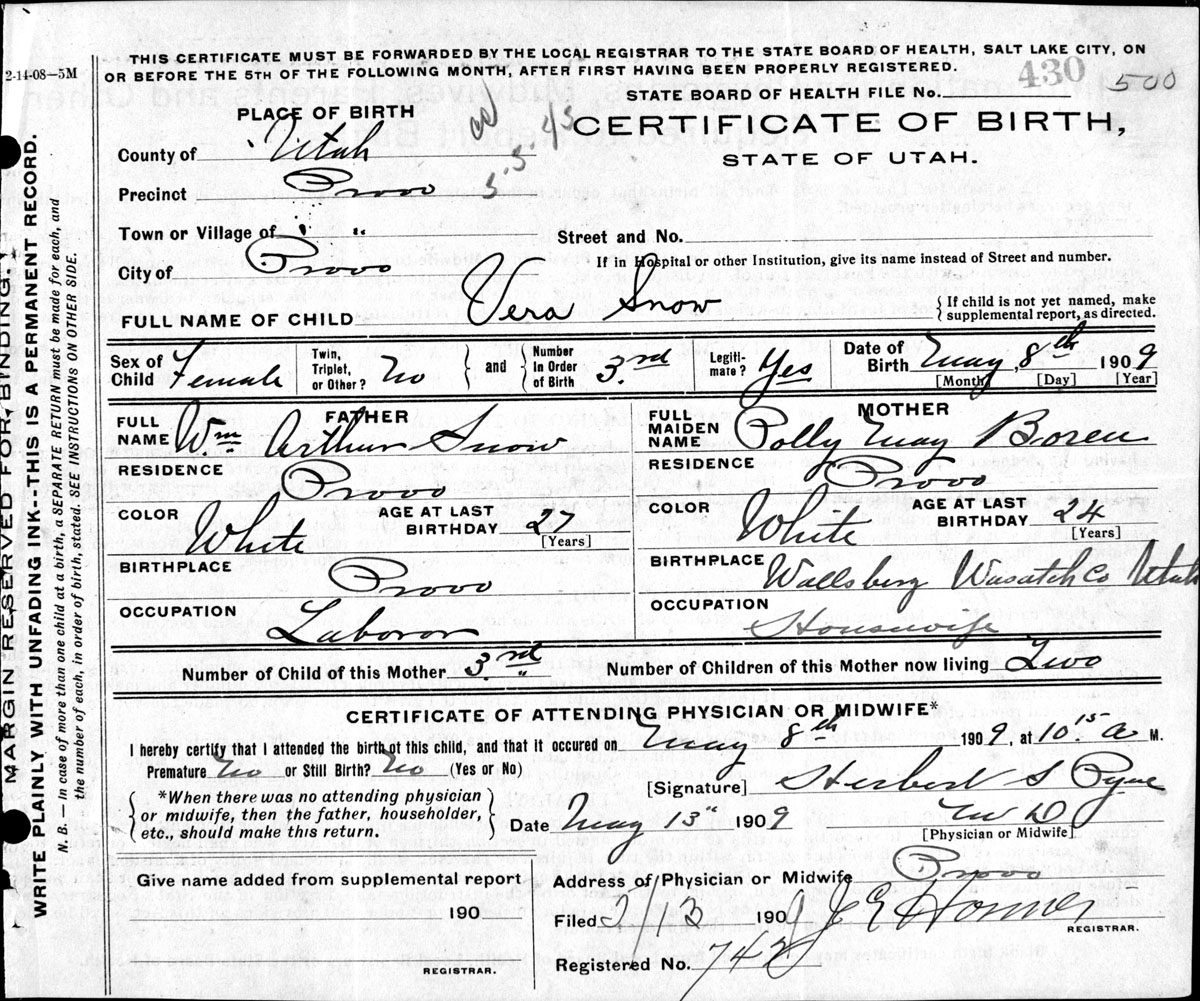 2-14-08-5M
THIS CERTIFICATE MUST BE FORWARDED BY THE LOCAL REGISTRAR TO THE STATE BOARD OF HEALTH, SALT LAKE CITY, ON
OR BEFORE THE 5TH OF THE FOLLOWING MONTH, AFTER FIRST HAVING BEEN PROPERLY REGISTERED.
STATE BOARD OF HEALTH FILE No. 430 500
PLACE OF BIRTH
CERTIFICATE OF BIRTH,
STATE OF UTAH.
County of Utah
Precinct Provo
Town or Village of " "
Street and No.
City of Provo
If in Hospital or other Institution, give its name instead of Street and number.
FULL NAME OF CHILD Vera Snow
{If child is not yet named, make
supplemental report, as directed.
Sex of Child Female Twin, Triplet, or Other? No } and { Number In Order of Birth 3rd Legitimate? Yes Date of Birth May, 8th 1909
[Month] [Day] [Year]
FATHER
FULL NAME Wm Arthur Snow
RESIDENCE Provo
COLOR White AGE AT LAST BIRTHDAY 27 [Years]
BIRTHPLACE Provo
OCCUPATION Laboror
MOTHER
FULL MAIDEN NAME Polly May Boren
RESIDENCE Provo
COLOR White AGE AT LAST BIRTHDAY 24 [Years]
BIRTHPLACE Wallsberg Wasatch Co Utah
OCCUPATION Housewife
Number of Child of this Mother 3rd Number of Children of this Mother now living Two
CERTIFICATE OF ATTENDING PHYSICIAN OR MIDWIFE*
I hereby certify that I attended the birth of this child, and that it occured on May 8th 1909, at 10 15 a M.
Premature No or Still Birth? No (Yes or No)
[Signature] Herbert S Pyne
{*When there was no attending physician
or midwife, then the father, householder,
etc., should make this return.}
Date May 13" 1909 M D
[Physician or Midwife]
Give name added from supplemental report
190
REGISTRAR.
Address of Physician or Midwife Provo
Filed 190
REGISTRAR.
Registered No. 742
MARGIN RESERVED FOR BINDING.
WRITE PLAINLY WITH UNFADING INK--THIS IS A PERMANENT RECORD.
N. B. — In case of more than one child at a birth, a SEPARATE RETURN must be made for each, and
the number of each, in order of birth, stated. SEE INSTRUCTIONS ON OTHER SIDE.